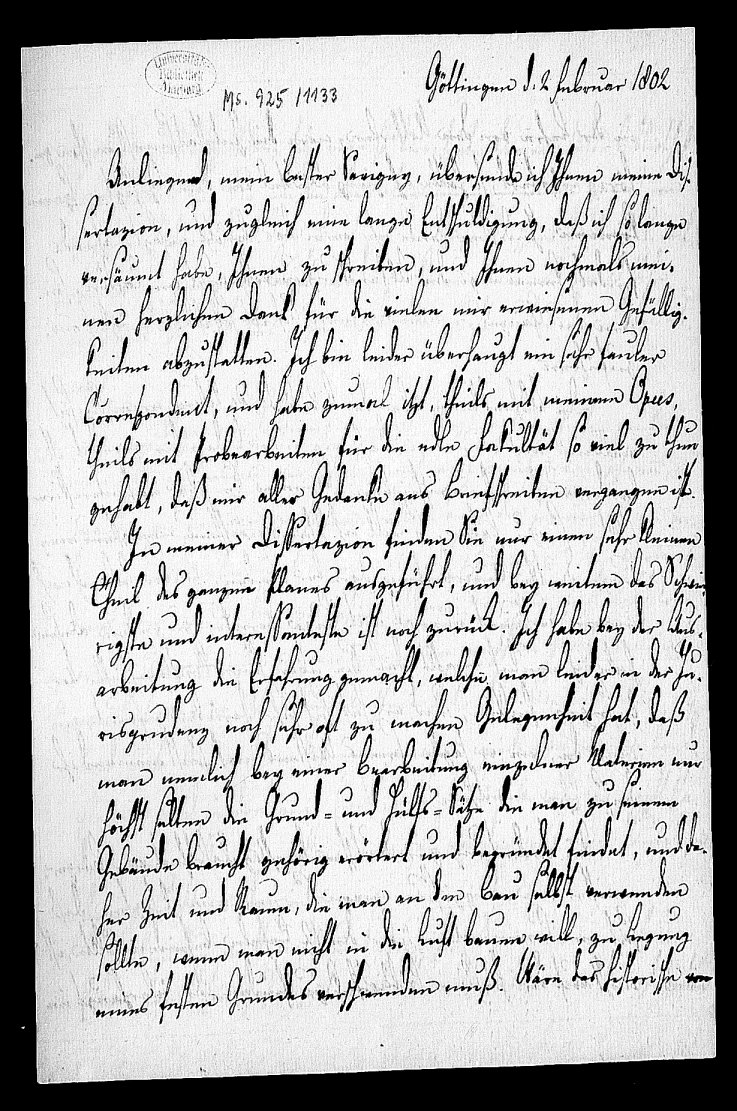 Universitäts-
Bibliothek
Marburg
Ms. 925/1133
Göttingen d. 2 Februar 1802
Anliegend, mein bester Savigny, übersende ich Ihnen meine Dis-
sertazion, und zugleich eine lange Entschuldigung, daß ich so lange
versäumt habe, Ihnen zu schreiben, und Ihnen nochmals mei-
nen herzlichen Dank für die vielen mir erwiesenen Gefällig-
keiten abzustatten. Ich bin leider überhaupt ein sehr fauler
Correspondent, und habe zumal itzt, theils mit meinem Opus,
theils mit Probearbeiten für die edle Fakultät so viel zu thun
gehabt, daß mir aller Gedanke ans Briefschreiben vergangen ist.
In meiner Dissertazion finden Sie nur einen sehr kleinen
Theil des ganzen Planes ausgeführt, und bey weitem das Schwie-
rigste und interessanteste ist noch zurück. Ich habe bey der Aus-
arbeitung die Erfahrung gemacht, welche man leider in der Ju-
risprudenz noch sehr oft zu machen Gelegenheit hat, daß
man nemlich bey einer Bearbeitung einzelner Materien nur
höchst selten die Grund- und Hülfs-Sätze die man zu seinem
Gebäude braucht gehörig erörtert und begründet findet, und da-
her Zeit und Raum, die man an den Bau selbst verwenden
sollte, wenn man nicht in die Luft bauen will, zu Legung
eines festen Grundes verschwenden muß. Wäre das historische von